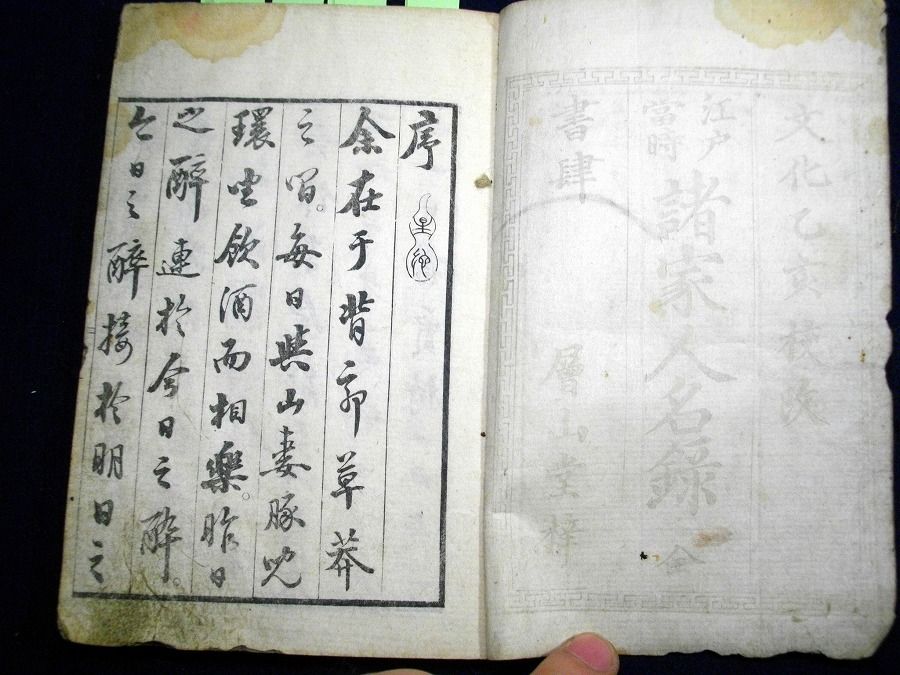 文化乙亥
江戸
當時
諸家人名録 全
書肆 層山堂梓
序
余在于背郭草莽
之間。每日與山妻豚兒
環坐飲酒而相樂。昨日
之醉連於今日之醉。
今日之醉接於明日之